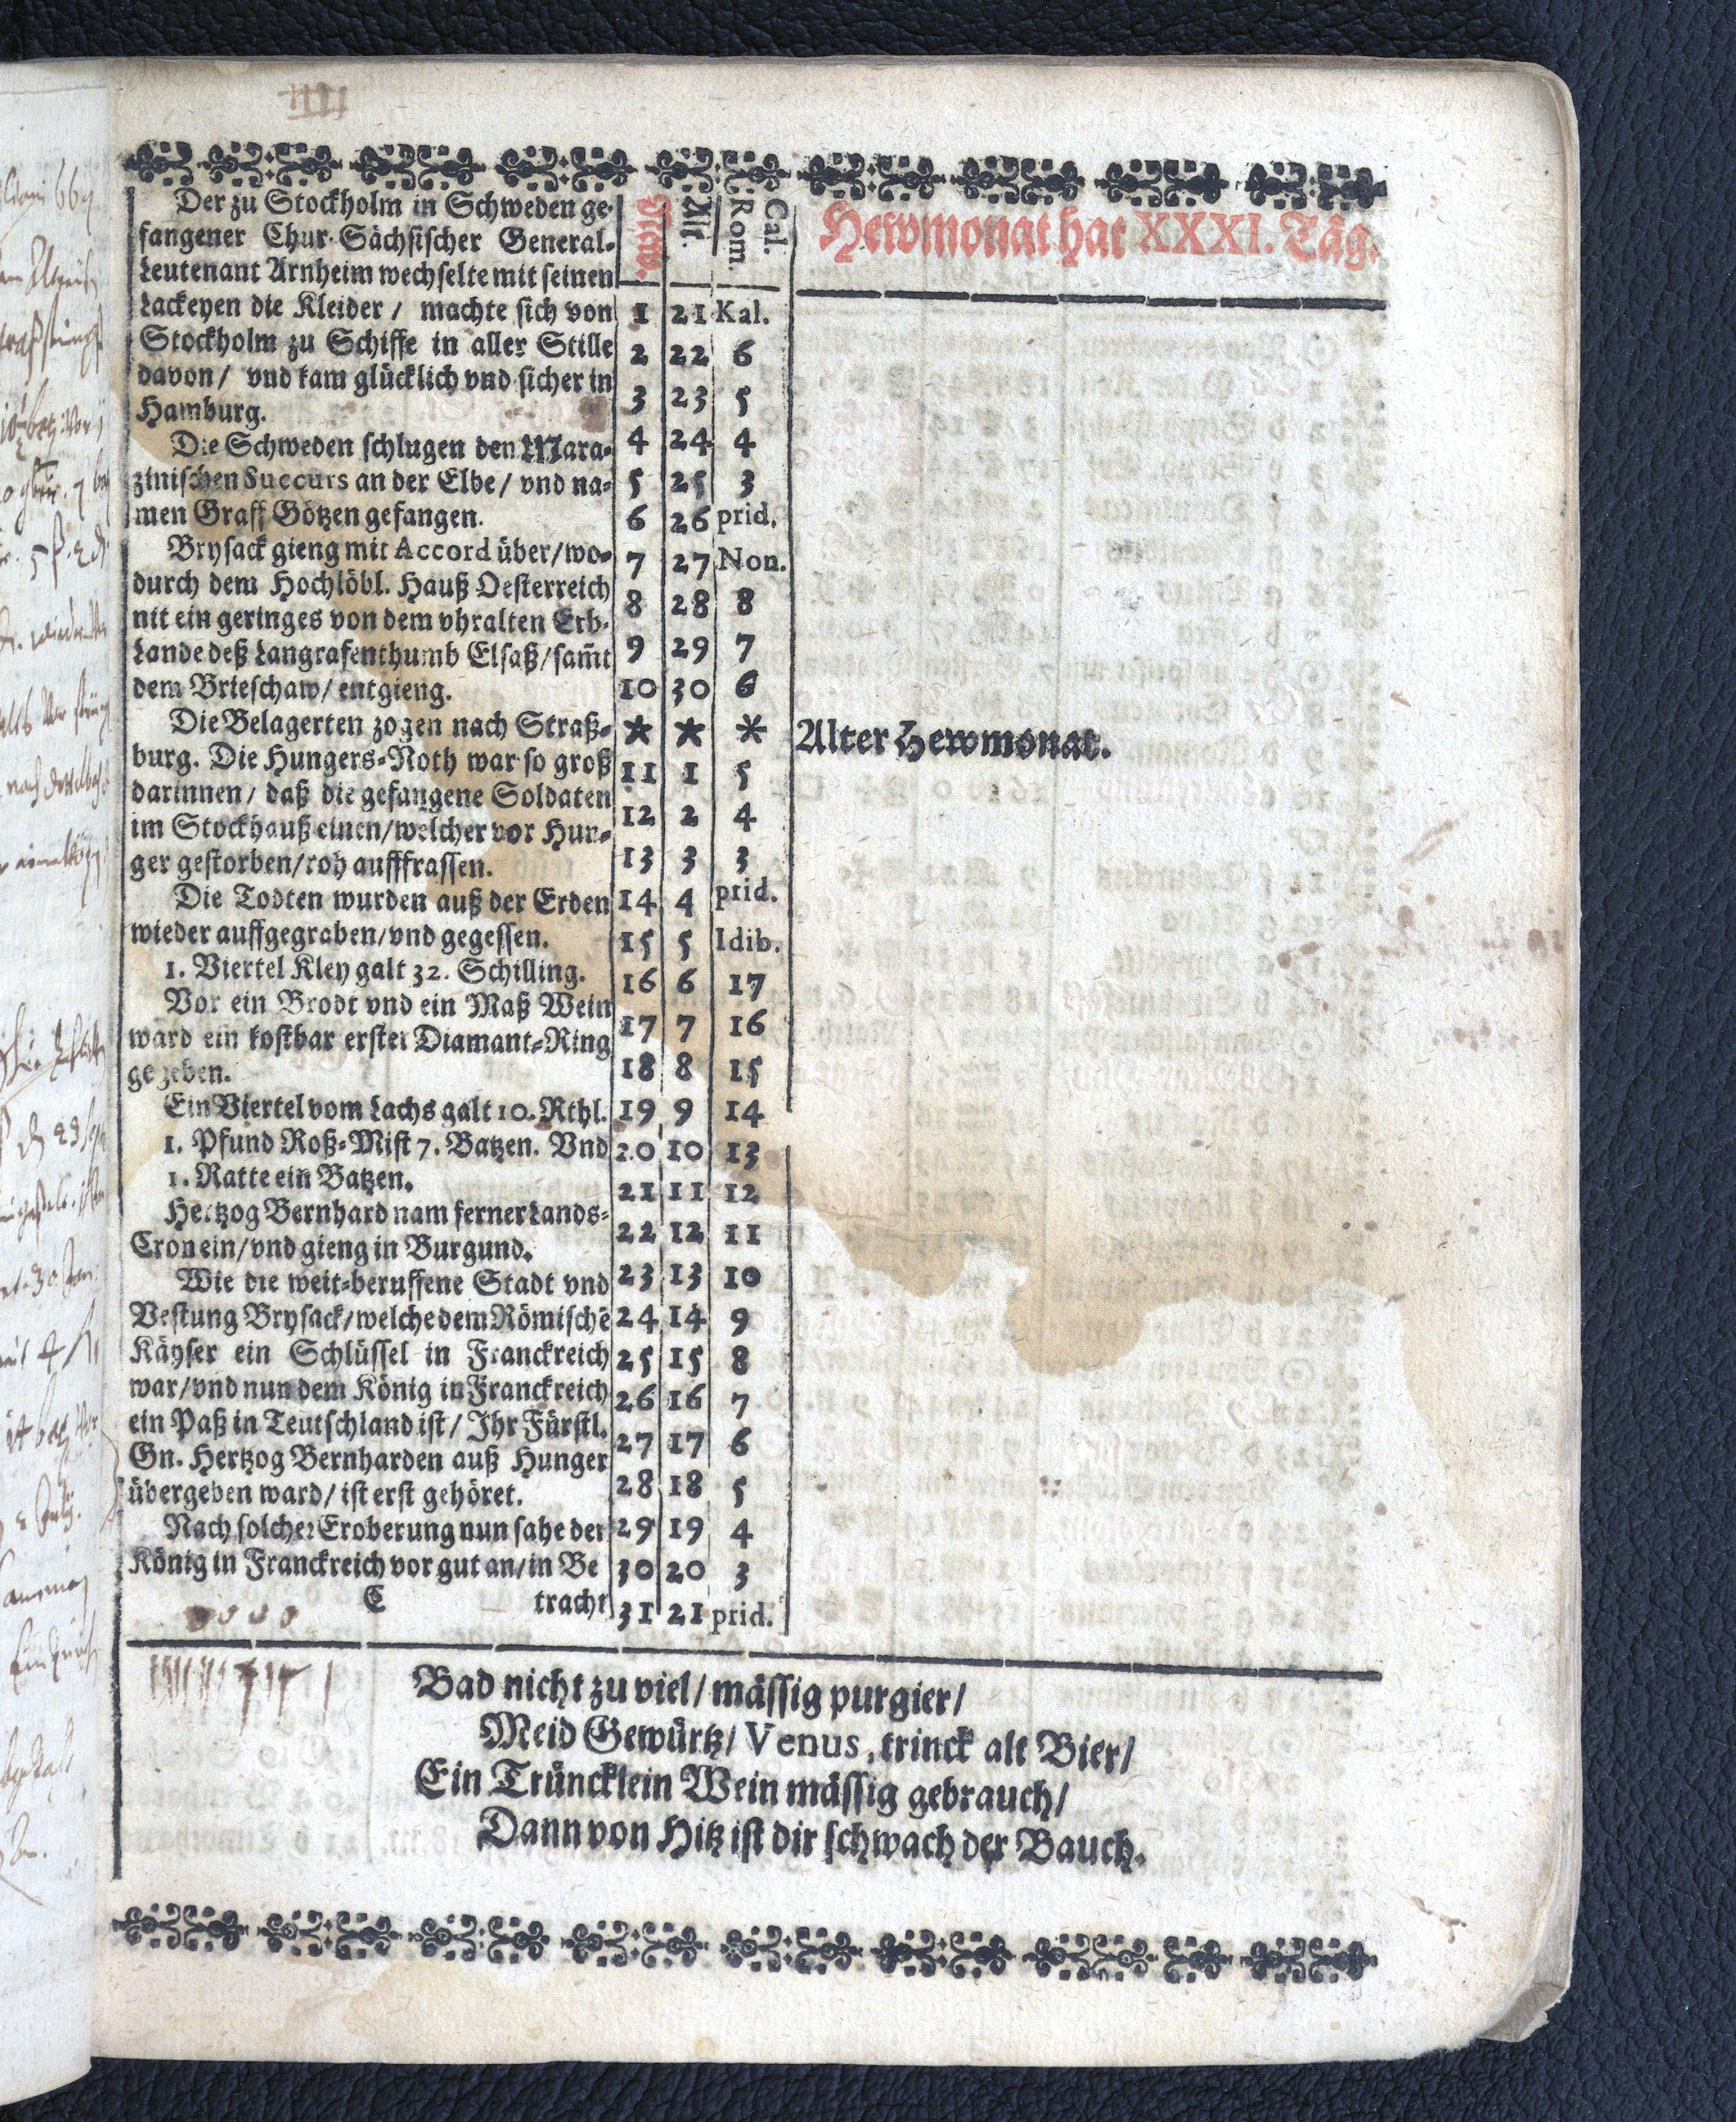 Der zu Stockholm in Schweden ge-
fangener Chur-Sächsischer General-
Leutenant Arnheim wechselte mit seinen
Lackeyen die Kleider / machte sich von
Stockholm zu Schiffe in aller Stille
davon / vnd kam glücklich vnd sicher in
Hamburg.
Die Schweden schlugen den Mara-
zinischen Succurs an der Elbe / vnd na-
men Graff Götzen gefangen.
Brysack gieng mit Accord über / wo-
durch dem Hochlöbl. Hauß Oesterreich
nit ein geringes von dem vhralten Erb-
Lande deß Langrafenthumb Elsaß / sam̃t
dem Brieschaw / entgieng.
Die Belagerten zogen nach Straß-
burg. Die Hungers-Noth war so groß
darinnen / daß die gefangene Soldaten
im Stockhauß einen / welcher vor Hun-
ger gestorben / roh aufffrassen.
Die Todten wurden auß der Erden
wieder auffgegraben / vnd gegessen.
1. Viertel Kley galt 32. Schilling.
Vor ein Brodt vnd ein Maß Wein
ward ein kostbar erster Diamant-Ring
gegeben.
Ein Viertel vom Lachs galt 10. Rthl.
1. Pfund Roß-Mist 7. Batzen. Vnd
1. Ratte ein Batzen.
Hertzog Bernhard nam ferner Lands-
Cron ein / vnd gieng in Burgund.
Wie die weit-beruffene Stadt vnd
Vestung Brysack / welche dem Römischẽ
Käyser ein Schlüssel in Franckreich
war / vnd nun dem König in Franckreich
ein Paß in Teutschland ist / Ihr Fürstl.
Gn. Hertzog Bernharden auß Hunger
übergeben ward / ist erst gehöret.
Nach solcher Eroberung nun sahe der
König in Franckreich vor gut an / in Be
C tracht
New. Alt. Cal. Rom. Hewmonat hat XXXI. Täg.
1 21 Kal.
2 22 6
3 23 5
4 24 4
5 25 3
6 26 prid.
7 27 Non.
8 28 8
9 29 7
10 30 6
* * * Alter Hewmonat.
11 1 5
12 2 4
13 3 3
14 4 prid.
15 5 Idib.
16 6 17
17 7 16
18 8 15
19 9 14
20 10 13
21 11 12
22 12 11
23 13 10
24 14 9
25 15 8
26 16 7
27 17 6
28 18 5
29 19 4
30 20 3
31 21 prid.
Bad nicht zu viel / mässig purgier /
Meid Gewürtz / Venus, trinck alt Bier /
Ein Trüncklein Wein mässig gebrauch /
Dann von Hitz ist dir schwach der Bauch.